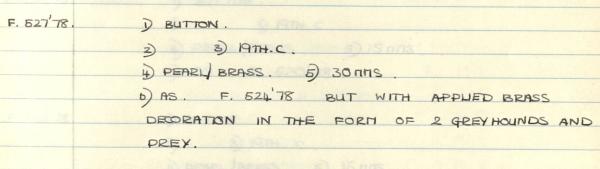 F. 527'78. 1) BUTTON.
2) 3) 19TH.C.
4) PEARL/BRASS. 5) 30MMS.
6) AS. F. 524'78 BUT WITH APPLIED BRASS
DECORATION IN THE FORM OF 2 GREYHOUNDS AND
PREY.